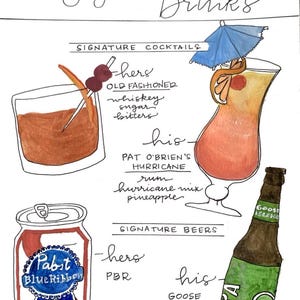 Drinks
SIGNATURE COCKTAILS
hers
OLD FASHIONED
whiskey
sugar
bitters
his
PAT O'BRIEN'S
HURRICANE
rum
hurricane mix
pineapple
SIGNATURE BEERS
Pabst
Blue Ribbon
hers
PBR
his
GOOSE
GOOSE
ISLAND